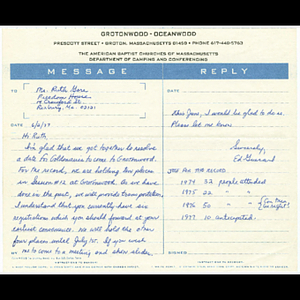 GROTONWOOD - OCEANWOOD
PRESCOTT STREET • GROTON, MASSACHUSETTS 01450 • PHONE 617-448-5763
THE AMERICAN BAPTIST CHURCHES OF MASSACHUSETTS
DEPARTMENT OF CAMPING AND CONFERENCING
MESSAGE
REPLY
TO
Ms. Ruth
Freedom House
14 Crawford St.
Roxbury, Ma. 02121
DATE
DATE
Hi Ruth,
I'm glad that we got together to resolve
a date for Goldenaires to come to Grotonwood.
For the record, we are holding four places
in Session #12 at Grotonwood. As we have
done in the past, we will provide transportation.
I understand that you currently have six
registrations which you should forward at your
earliest convenience. We will hold the other
four places until July 15. If you wish
me to come to a meeting and show slides
this June, I would be glad to do so.
Please let me know.
Sincerely,
Ed
JUST FOR THE RECORD:
1974 32 people attended
1975 22 " "
1976 50 " "
1977 10 anticipated.
BY
SIGNED